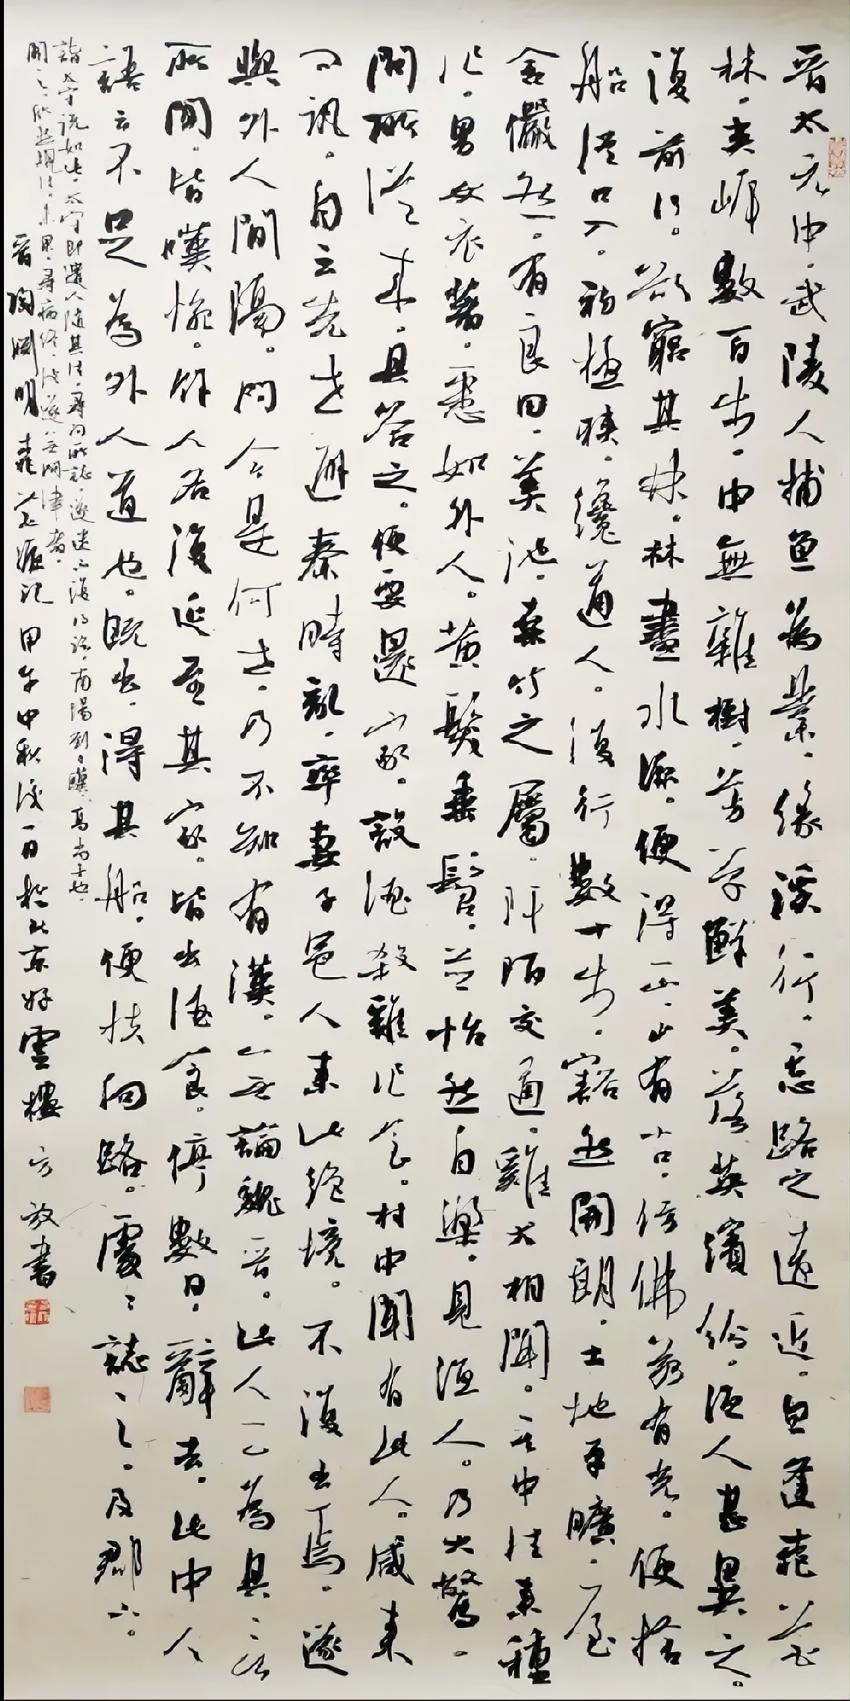 晉太元中。武陵人捕魚為業。緣溪行。忘路之遠近。忽逢桃花
林。夾岸數百步。中無雜樹。芳草鮮美。落英繽紛。漁人甚異之。
復前行。欲窮其林。林盡水源。便得一山。山有小口。彷彿若有光。便捨
船從口入。初極狹。纔通人。復行數十步。豁然開朗。土地平曠。屋
舍儼然。有良田。美池。桑竹之屬。阡陌交通。雞犬相聞。其中往來種
作。男女衣著。悉如外人。黃髮垂髫。並怡然自樂。見漁人。乃大驚。
問所從來。具答之。便要還家。設酒殺雞作食。村中聞有此人。咸來
問訊。自云先世避秦時亂。率妻子邑人來此絕境。不復出焉。遂
與外人間隔。問今是何世。乃不知有漢。無論魏晉。此人一一為具言
所聞。皆嘆惋。餘人各復延至其家。皆出酒食。停數日。辭去。此中人
語云不足為外人道也。既出。得其船。便扶向路。處處誌之。及郡下。
詣太守說如此。太守即遣人隨其往。尋向所誌。遂迷不復得路。南陽劉子驥。高尚士也。
聞之。欣然規往。未果。尋病終。後遂無問津者。
晉陶淵明桃花源記 甲午中秋後一日於北京好雲樓 方放書